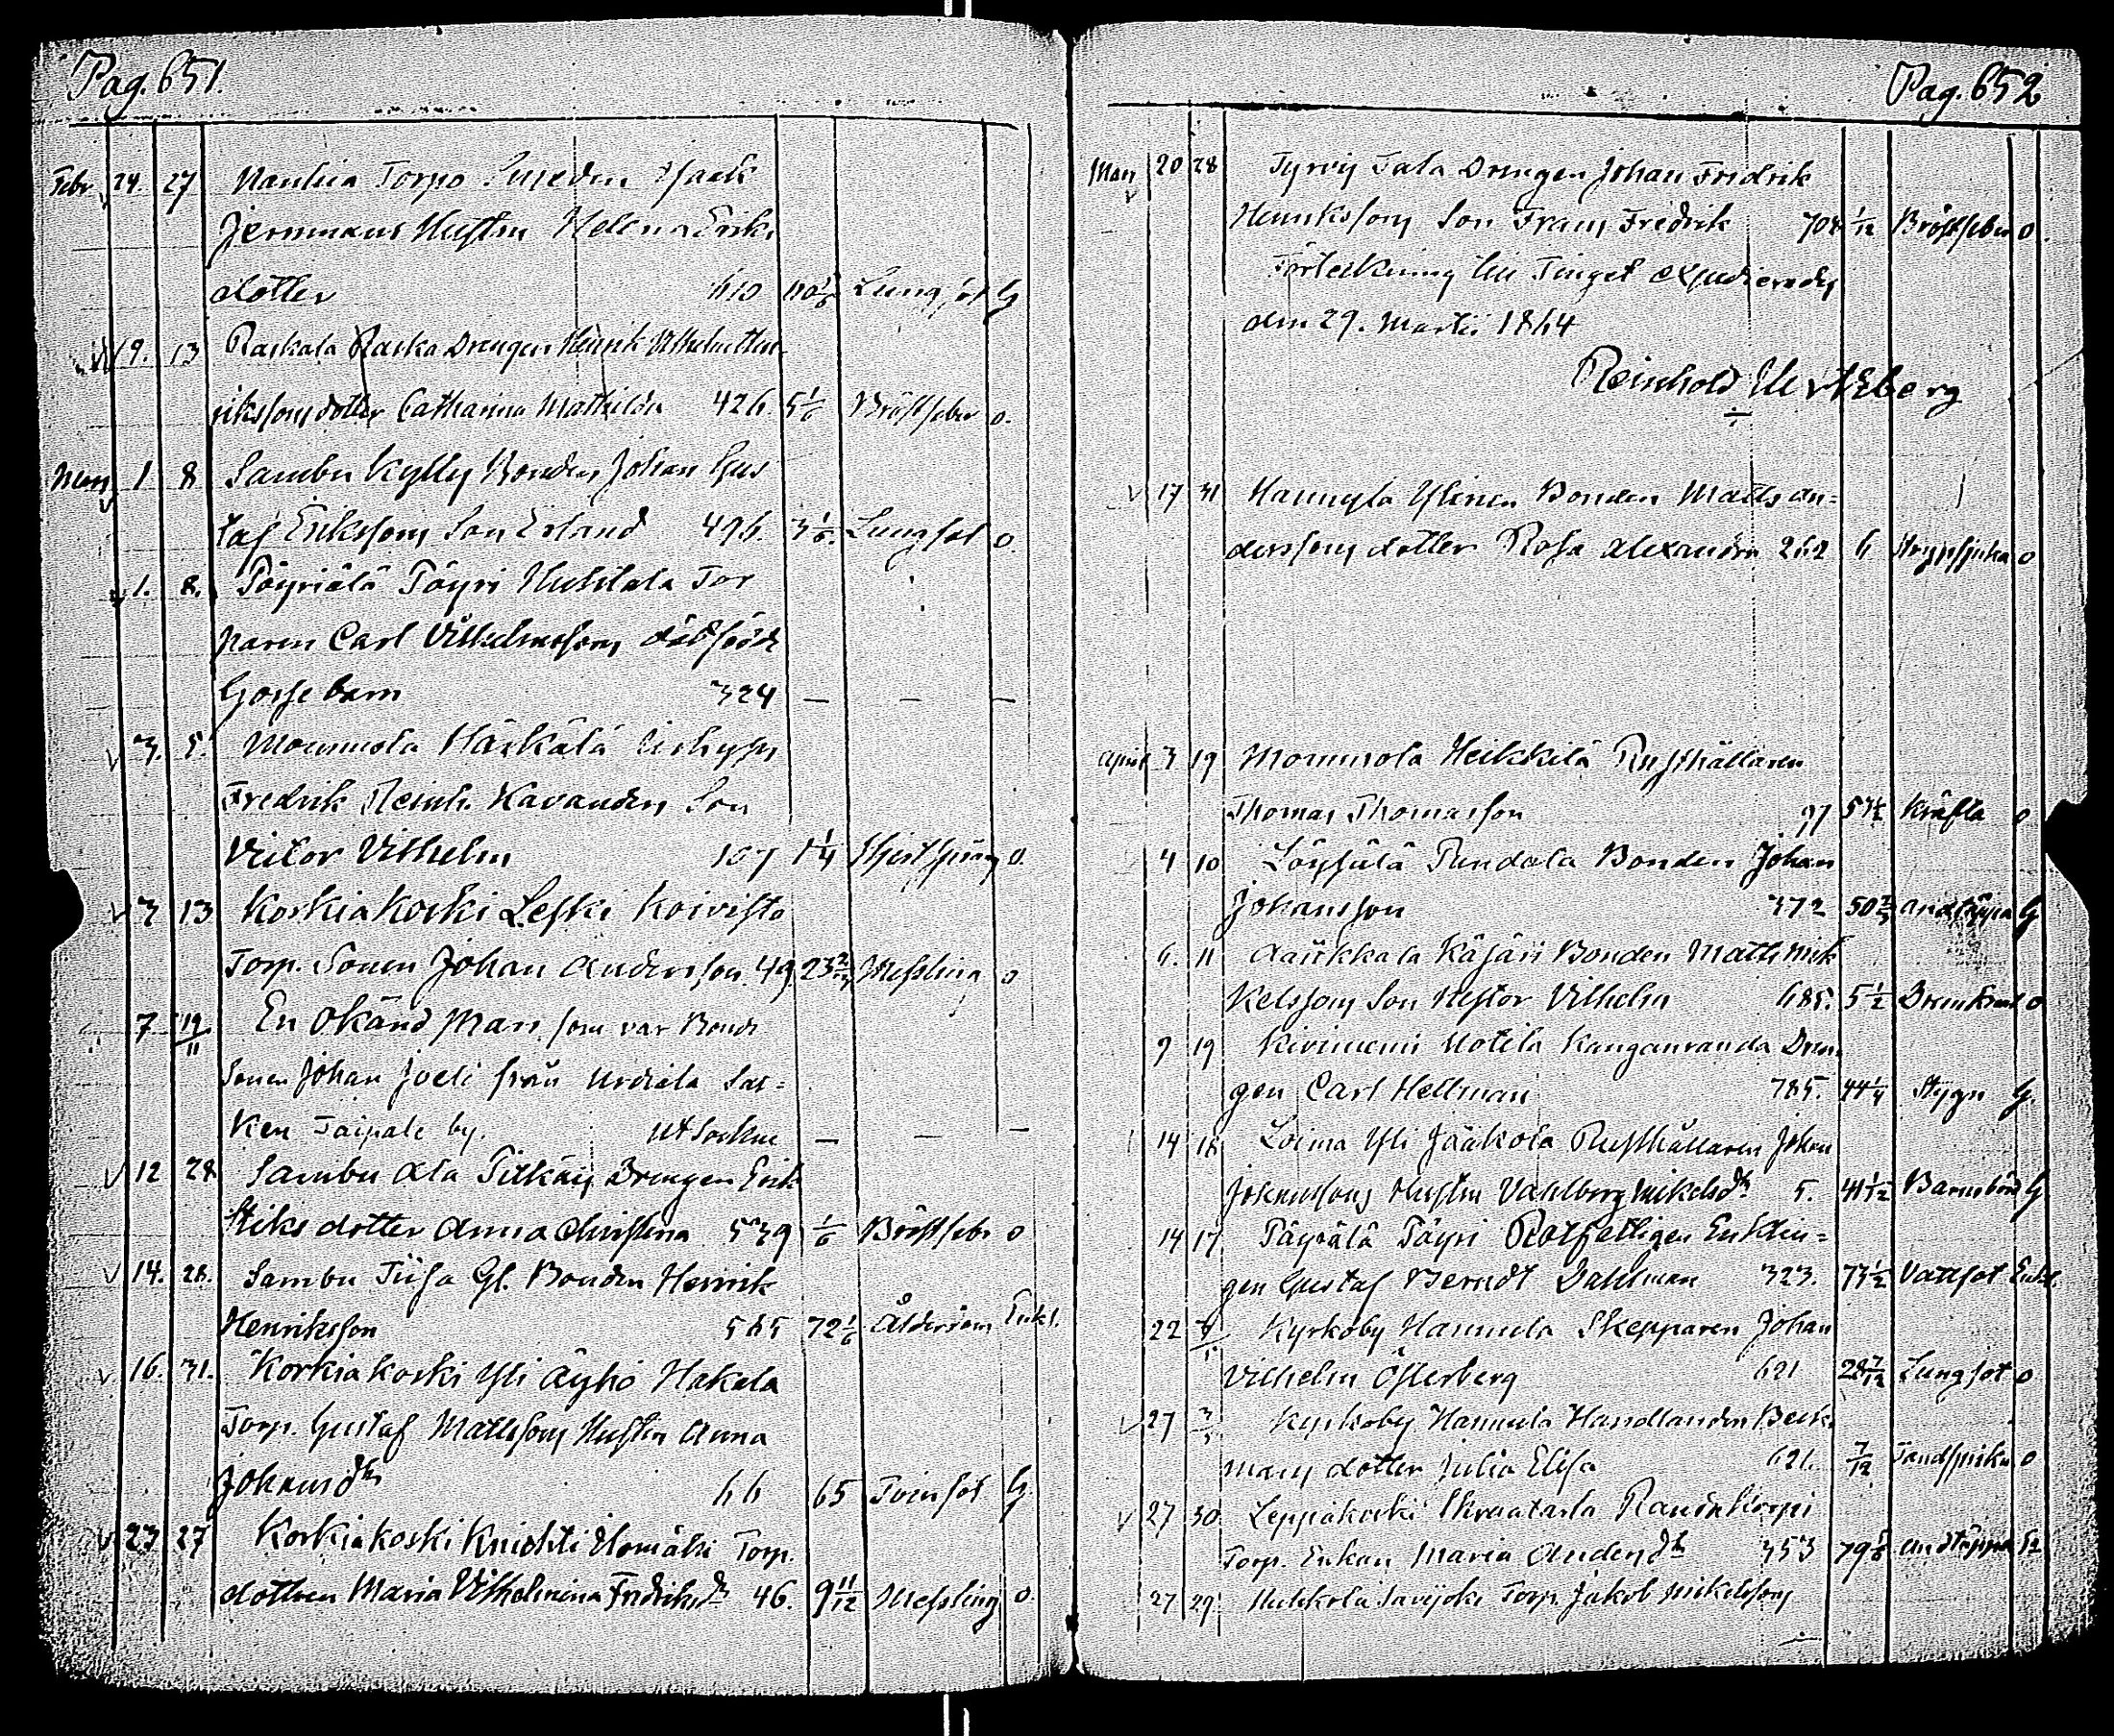 Pag. 651.
Febr 24. 27 Torpo Smeden Isaak
Jermmans Hustru Helena Eriks
dotter 610 40 1/6 Lungsot G
9. 13 Raskala Raska Drengen Henrik Vilhelm Hen
rikssons dotter Catharina Mathilda 426. 5 1/6 Bröstfeber o.
Mars 1 8 Sambu Kylly Bonden Johan Gus
taf Erikssons Son Erland 496. 3 1/6. Lungsot o.
1. 8. Töyriälä Töyri Torparen Carl Vilhelmssons dödfödde
Gossebarn 324 — — —
3. 5. Mommola Härkälä
Fredrik Reinh. Kavanders Son
Victor Vilhelm 107 1 1/4 o.
3 13 Korkiakoski Leski Koivisto
Torp. Sonen Johan Andersson. 49. 23 Messlina o
7 19/11 En Okänd Man som var Bonde
Sonen Johan Joeli från Urdiala Soc=
ken Taipale by. Ut Sockne — — —
12 28 Sambu Ala Pitkäis Drengen Erik
Eriks dotter Anna Christina 539 1/6 Bröstfebr o
14. 28. Sambu Tiisa Gl. Bonden Henrik
Henriksson 565 72 1/6 Ålderdom Enkl.
16. 31. Korkiakoski Yli Äyhö Hakala
Torp. Gustaf Mattssons Hustru Anna
Johansdtr 66 65 Tvinsot G.
23 27 Korkiakoski Knichti Torp.
dottren Maria Vilhelmina Fredriksdr 46. 9 11/12 Messling o.
Pag. 652
Mars 20 28 Tyrvis Tala Drengen Johan Fredrik
Henrikssons Son Frans Fredrik 704 1/12 Bröstfeber o.
Förteckning till Tinget expedierades
den 29. Martii 1864
Reinhold Hertzberg
17 31 Hannula Ylinen Bonden Matts An=
derssons dotter Rosa Alexandra 262 6 Strypsjuka o
April 3 19 Mommola Heikkilä Rusthållaren
Thomas Thomasson 97 57 1/2 Kräfta o
4 10 Löysälä Pundola Bonden Johan
Johansson 372 50 2/3 Andtäppa G
6. 11 Käjäri Bonden Matts Mik
kelssons Son Nestor Vilhelm 685. 5 1/2 o
9 19 Kiviniemi Uotila Kanganranda Dren
gen Carl Hellman 785. 44 1/4 Stygn G.
14 18 Loima Yli Jaakola Rusthållaren Johan
Johanssons Hustru Vahlberg Mikelsdtr 5. 41 1/12 Barnsbörd G
14 17 Töyrälä Töyri Rotfattigen Enklin=
gen Gustaf Berndt Dahlman 323. 73 1/2 Vattsot Enkl.
22 Kyrkoby Hannula Skepparen Johan
Vilhelm Österberg 621 28 7/12 Lungsot o
27 3/5 Kyrkoby Hannula Handlanden Beck
mans dotter Julia Elisa 621. 7/12 Tandspricka o
27 30 Leppäkoski Skraatarla Rauinkorpi
Torp. Enkan Maria Andersdtr 353 79 5/6 Andtäppa E
27 29 Huhkola Savijoki Torp. Jakob Mikelssons